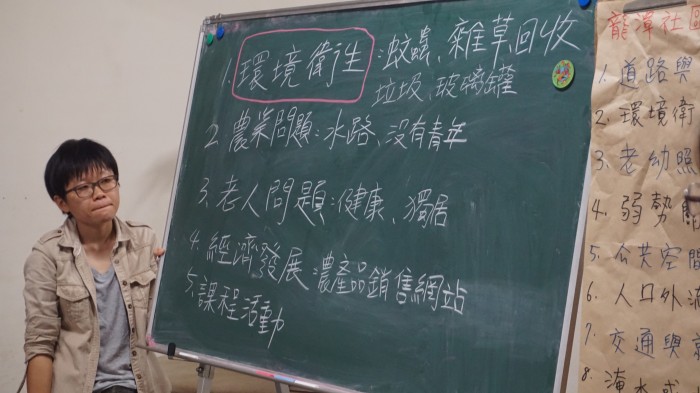 1. 環境衛生:蚊蟲、雜草、回收
垃圾、玻璃罐
2. 農業問題:水路、沒有青年
3. 老人問題:健康、獨居
4. 經濟發展:農產品銷售網站
5. 課程活動
龍潭社區
1. 道路與
2. 環境衛
3. 老幼照
4. 弱勢
5. 公共空間
6. 人口外流
7. 交通與
8. 淹水